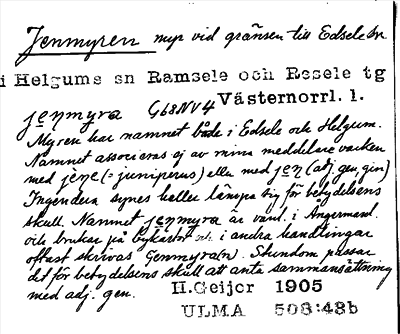 Jenmyren myr vid gränsen till Edsele sn
i Helgums sn Ramsele och Resele tg
Västernorrl. l.
jenmyra G68NV4
Myren har namnet både i Edsele och Helgum.
Namnet associeras ej av mina meddelare varken
med jene (= juniperus) eller med jen (adj. gen, gin)
Ingendera synes heller lämpa sig för betydelsens
skull. Namnet jenmyra är vanl. i Ångermanl.
och brukar på bykartor och i andra handlingar
oftast skrivas Genmyra(n). Stundom passar
det för betydelsens skull att anta sammansättning
med adj. gen.
H.Geijer 1905
ULMA 508:48b